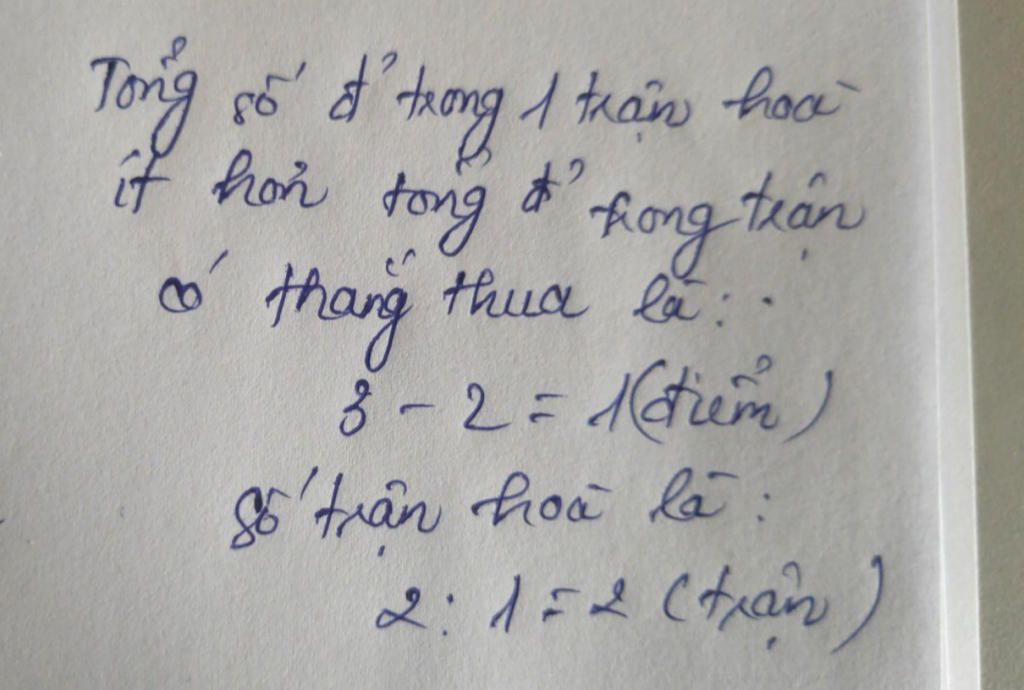 Tổng số đ' trong 1 trận hoà
ít hơn tổng đ' trong trận
có thắng thua là:
3 - 2 = 1 (điểm)
số trận hoà là:
2 : 1 = 2 (trận)